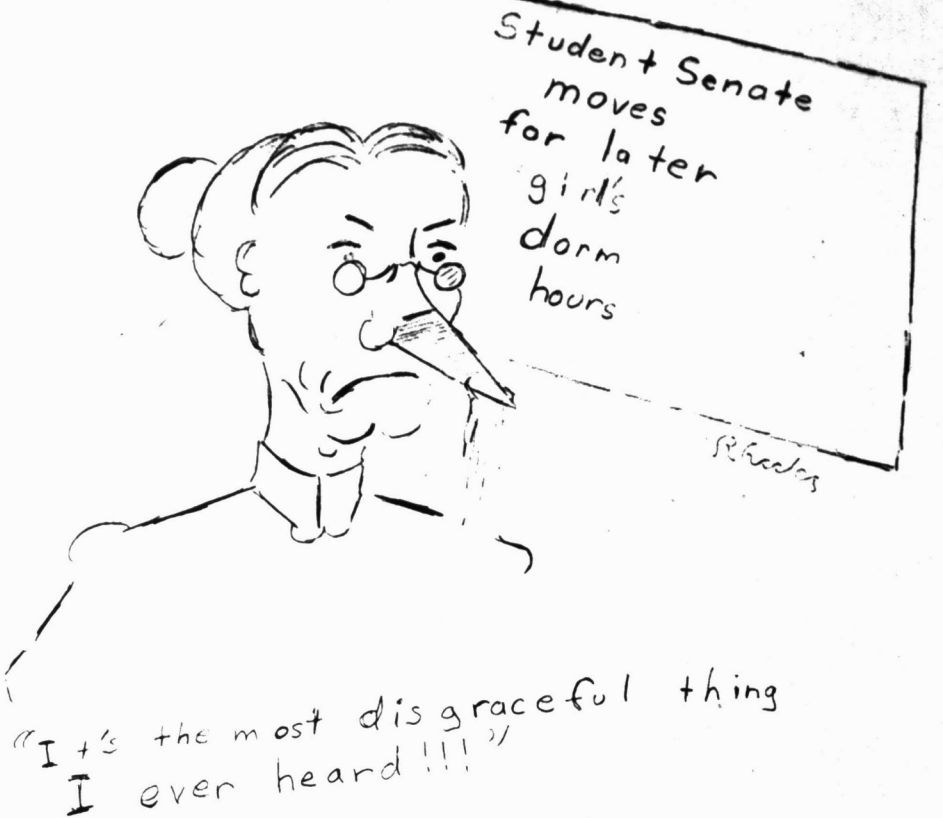 Student Senate
moves
for later
girl's
dorm
hours
Rhodes
"It's the most disgraceful thing
I ever heard!!!"